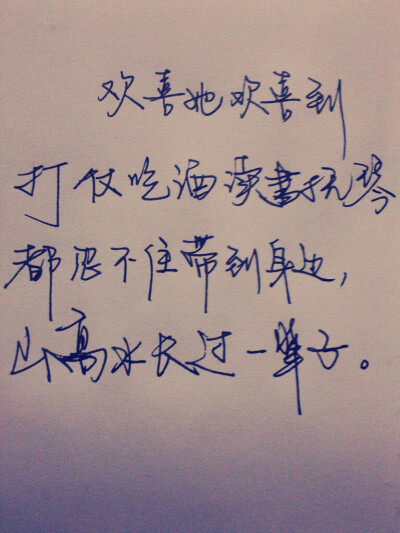 欢喜她欢喜到
打仗吃酒读书抚琴
都忍不住带到身边,
山高水长过一辈子。